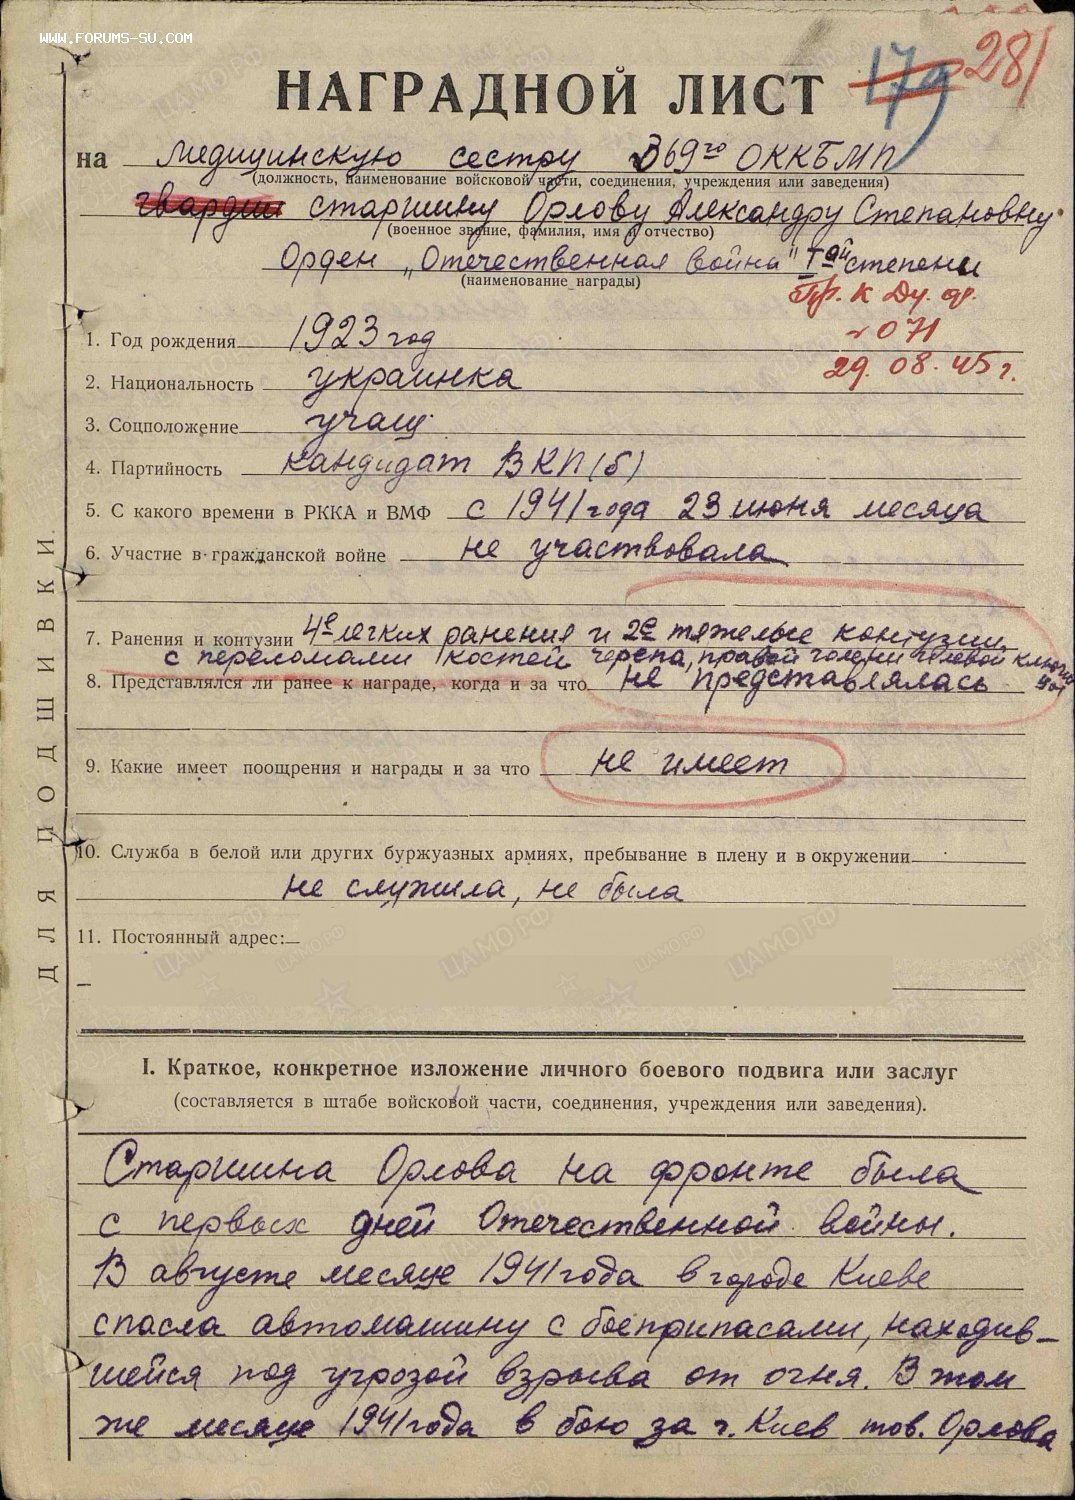 www.forums-su.com
179 281
НАГРАДНОЙ ЛИСТ
на медицинскую сестру 369го ОККБМП
(должность, наименование войсковой части, соединения, учреждения или заведения)
гвардии старшину Орлову Александру Степановну
(военное звание, фамилия, имя и отчество)
Орден „Отечественная война" I ой степени
(наименование награды)
Пр. К
№ 071
29.08.45 г.
1. Год рождения 1923 год
2. Национальность украинка
3. Соцположение учащ.
4. Партийность кандидат ВКП(б)
5. С какого времени в РККА и ВМФ с 1941 года 23 июня месяца
6. Участие в гражданской войне не участвовала
7. Ранения и контузии 4е легких ранения и 2е тяжелые контузии,
с переломами костей черепа, правой голени и левой
8. Представлялся ли ранее к награде, когда и за что не представлялась
9. Какие имеет поощрения и награды и за что не имеет
10. Служба в белой или других буржуазных армиях, пребывание в плену и в окружении
не служила, не была
11. Постоянный адрес:
ДЛЯ ПОДШИВКИ
I. Краткое, конкретное изложение личного боевого подвига или заслуг
(составляется в штабе войсковой части, соединения, учреждения или заведения).
Старшина Орлова на фронте была
с первых дней Отечественной войны.
В августе месяце 1941 года в городе Киеве
спасла автомашину с боеприпасами, находив-
шейся под угрозой взрыва от огня. В том
же месяце 1941 года в бою за г. Киев тов. Орлова
ЦА МО РФ